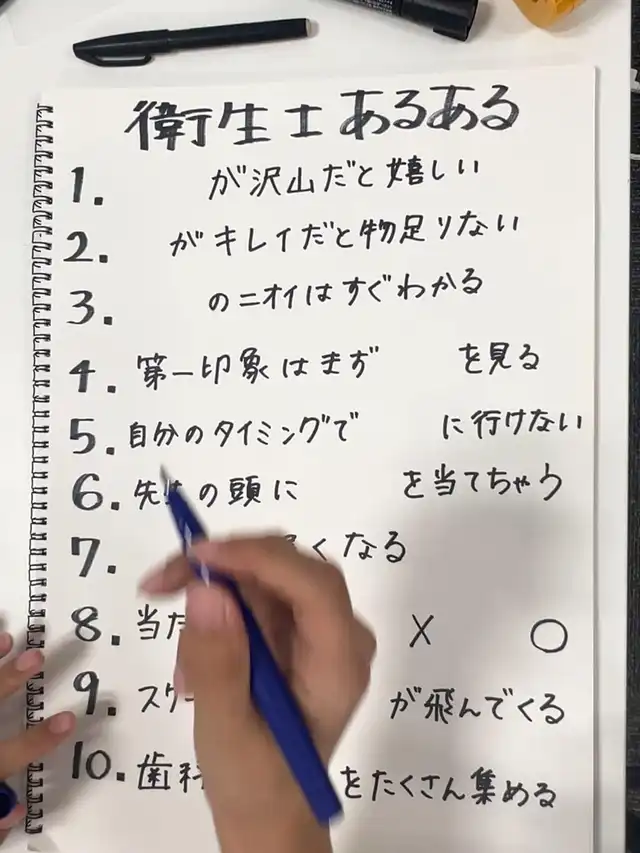 衛生士あるある
1. が沢山だと嬉しい
2. がキレイだと物足りない
3. のニオイはすぐわかる
4. 第一印象はまず を見る
5. 自分のタイミングで に行けない
6. の頭に を当てちゃう
7. くなる
8. 当 × ○
9. スケ が飛んでくる
10. 歯科 をたくさん集める